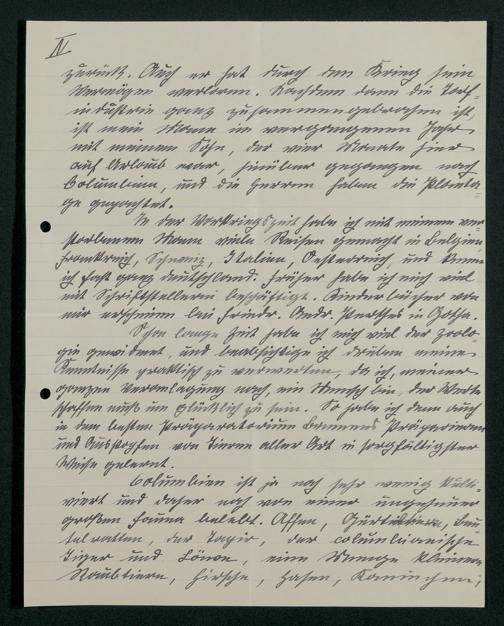 IV
zurück. Auch er hat durch den Krieg sein
Vermögen verloren. Nachdem dann die Torf-
industrie ganz zusammengebrochen ist,
ist mein Mann im vergangenen Jahr
mit meinem Sohn, der vier Monate hier
auf Urlaub war, hinüber gegangen nach
Columbien, und die Herren haben die Planta-
ge gepachtet.
In der Vorkriegszeit habe ich mit meinem ver-
storbenen Mann viele Reisen gemacht in Belgien
Frankreich, Schweiz, Italien, Oesterreich und kenne
ich fast ganz Deutschland. Früher habe ich mich viel
mit Schriftstellerei beschäftigt. Kinderbücher von
mir erschienen bei Friedr. Andr. Perthes in Gotha.
Schon lange Zeit habe ich mich viel der Zoolo-
gie gewidmet, und beabsichtige ich drüben meine
Kenntnisse praktisch zu verwerten, da ich, meiner
ganzen Veranlagung nach, ein Mensch bin, der Werte
schaffen muß um glücklich zu sein. So habe ich denn auch
in dem besten Präparatorium Bremens Präparieren
und Ausstopfen von Tieren aller Art in sorgfältigster
Weise gelernt.
Columbien ist ja noch sehr wenig kulti-
viert und daher noch von einer ungeheuer
großen Fauna belebt. Affen, Gürteltiere, Beu-
telratten, der Tapir, der columbianische
Tiger und Löwe, eine Menge kleinere
Raubtiere, Hirsche, Hasen, Kaninchen,